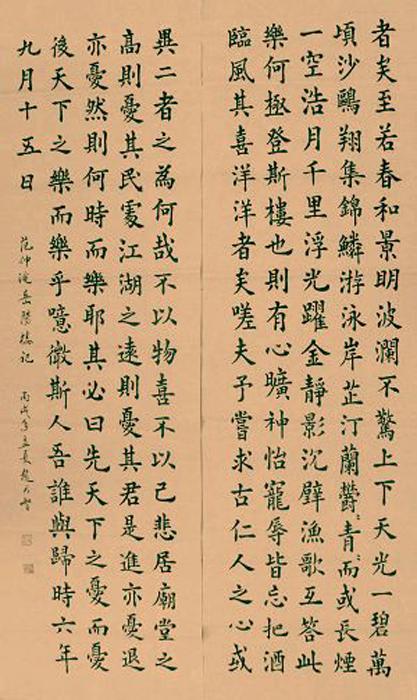 者矣至若春和景明波瀾不驚上下天光一碧萬
頃沙鷗翔集錦鱗游泳岸芷汀蘭鬱〻青〻而或長煙
一空浩月千里浮光躍金靜影沉璧漁歌互答此
樂何極登斯樓也則有心曠神怡寵辱皆忘把酒
臨風其喜洋洋者矣嗟夫予嘗求古仁人之心或
異二者之為何哉不以物喜不以己悲居廟堂之
高則憂其民處江湖之遠則憂其君是進亦憂退
亦憂然則何時而樂耶其必曰先天下之憂而憂
後天下之樂而樂乎噫微斯人吾誰與歸時六年
九月十五日 范仲淹岳陽樓記 丙戌年立夏